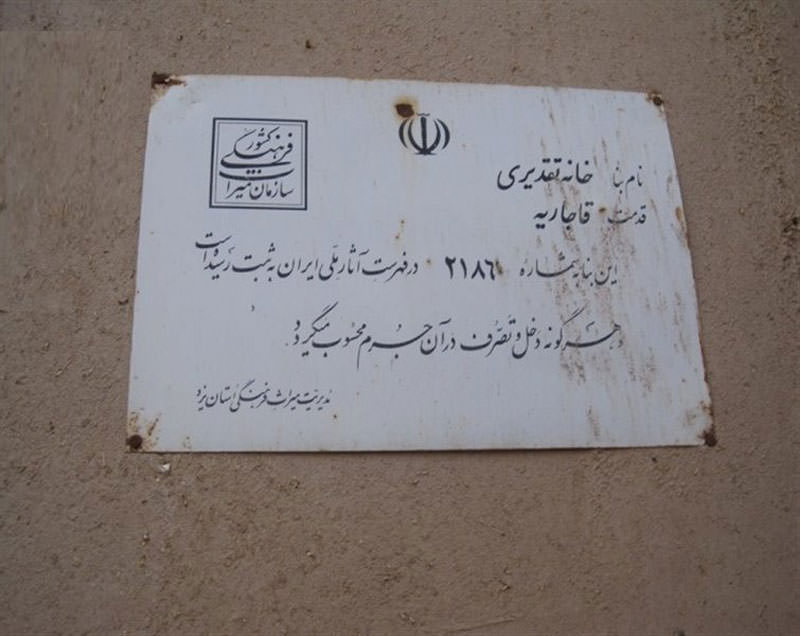 سازمان میراث فرهنگی کشور
نام بنا خانه تقدیری
قدمت قاجاریه
این بنا به شماره ۲۱۸۶ در فهرست آثار ملی ایران به ثبت رسیده است
هرگونه دخل و تصرف در آن جرم محسوب میگردد.
مدیریت میراث فرهنگی استان یزد